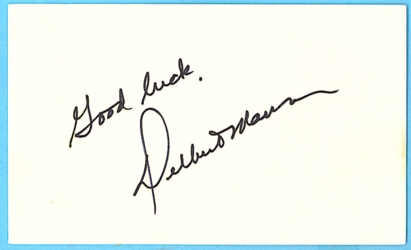 Good luck.
Delbert Mann